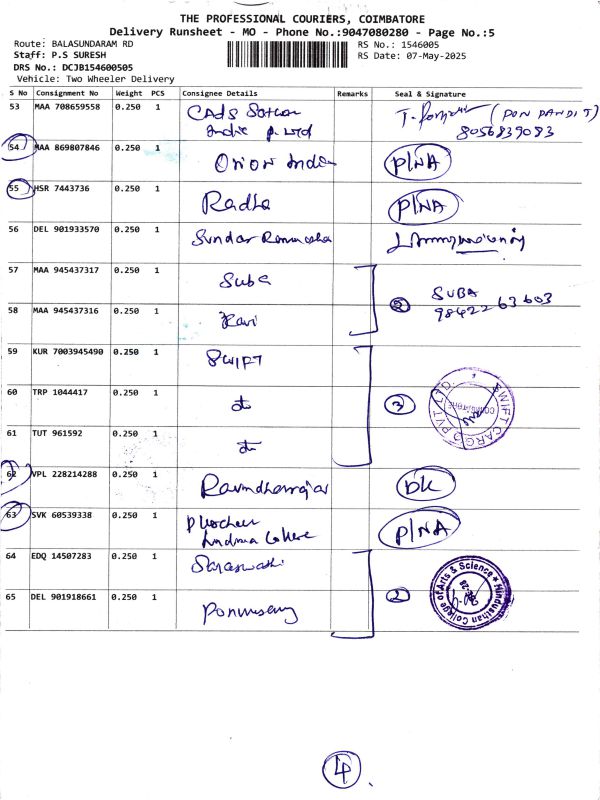 THE PROFESSIONAL COURIERS, COIMBATORE
Delivery Runsheet - MO - Phone No.:9047080280 - Page No.:5
Route: BALASUNDARAM RD
RS No.: 1546005
Staff: P.S SURESH
RS Date: 07-May-2025
DRS No.: DCJB154600505
Vehicle: Two Wheeler Delivery
S No Consignment No Weight PCS Consignee Details Remarks Seal & Signature
53 MAA 708659558 0.250 1 CADS
(PON PANDIT)
8056839083
54 MAA 869807846 0.250 1 Orion India P/NA
55 HSR 7443736 0.250 1 Radha P/NA
56 DEL 901933570 0.250 1 Sundar
57 MAA 945437317 0.250 1 Suba
② SUBA
9842263603
58 MAA 945437316 0.250 1 Ravi
59 KUR 7003945490 0.250 1 SWIFT
60 TRP 1044417 0.250 1 do ③ SWIFT CARGO PVT. LTD. COIMBATORE
61 TUT 961592 0.250 1 do
62 VPL 228214288 0.250 1 DK
63 SVK 60539338 0.250 1 P/NA
64 EDQ 14507283 0.250 1 Saraswathi
② Hindusthan College of Arts & Science
65 DEL 901918661 0.250 1
4